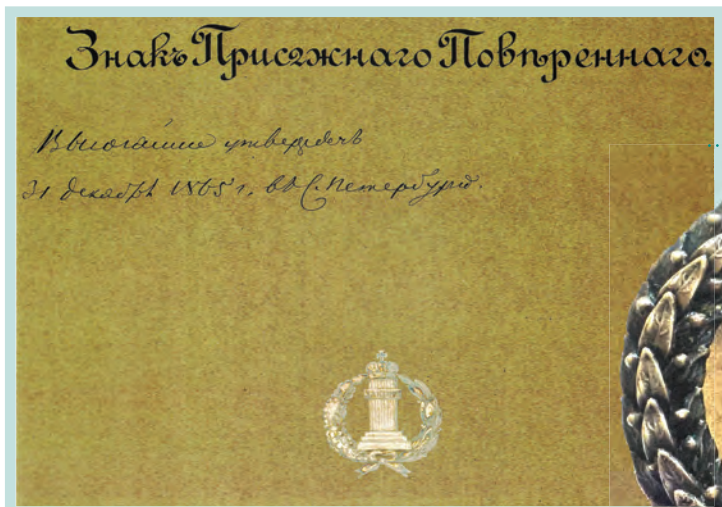 Знакъ Присяжнаго Повѣреннаго.
Высочайше утвержденъ
31 декабря 1865 г. въ С. Петербургѣ.